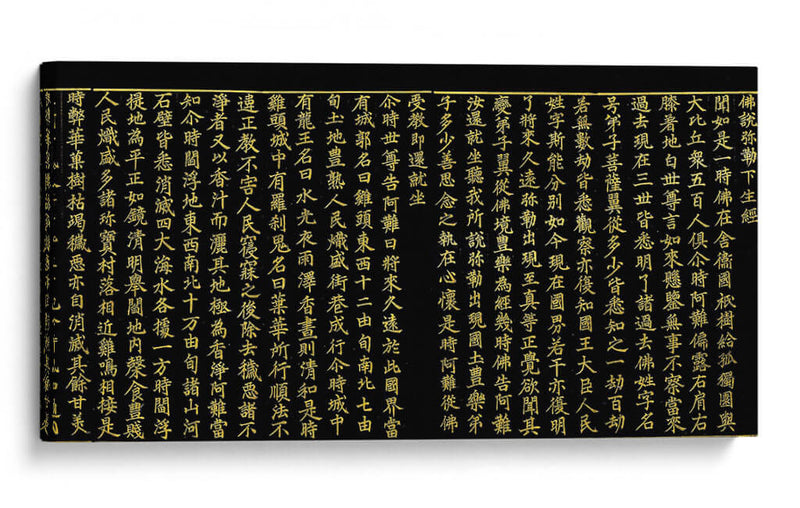 佛說弥勒下生經
聞如是一時佛在舍衛國祇樹給孤獨園與
大比丘衆五百人俱尒時阿難偏露右肩右
膝著地白世尊言如來懸鑒無事不察當來
過去現在三世皆悉明了諸過去佛姓字名
号弟子菩薩翼從多少皆悉知之一劫百劫
若無數劫皆悉觀察亦復知國王大臣人民
姓字斯能分別如今現在國界若干亦復明
了將來久遠弥勒出現至真等正覺欲聞其
變弟子翼從佛境豊樂為經幾時佛告阿難
汝還就坐聽我所說弥勒出現國土豊樂弟
子多少善思念之執在心懷是時阿難從佛
受教即還就坐
尒時世尊告阿難曰將來久遠於此國界當
有城郭名曰雞頭東西十二由旬南北七由
旬土地豊熟人民熾盛街巷成行尒時城中
有龍王名曰水光夜雨澤香晝則清和是時
雞頭城中有羅刹鬼名曰葉華所行順法不
違正教不告人民寢寐之後除去穢惡諸不
淨者又以香汁而灑其地極為香淨阿難當
知尒時閻浮地東西南北十万由旬諸山河
石壁皆悉消滅四大海水各據一方時閻浮
提地為平正如鏡清明舉閻地內榖食豊賤
人民熾盛多諸弥寶村落相近雞鳴相接是
時弊華菓樹枯竭穢惡亦自消滅其餘甘美